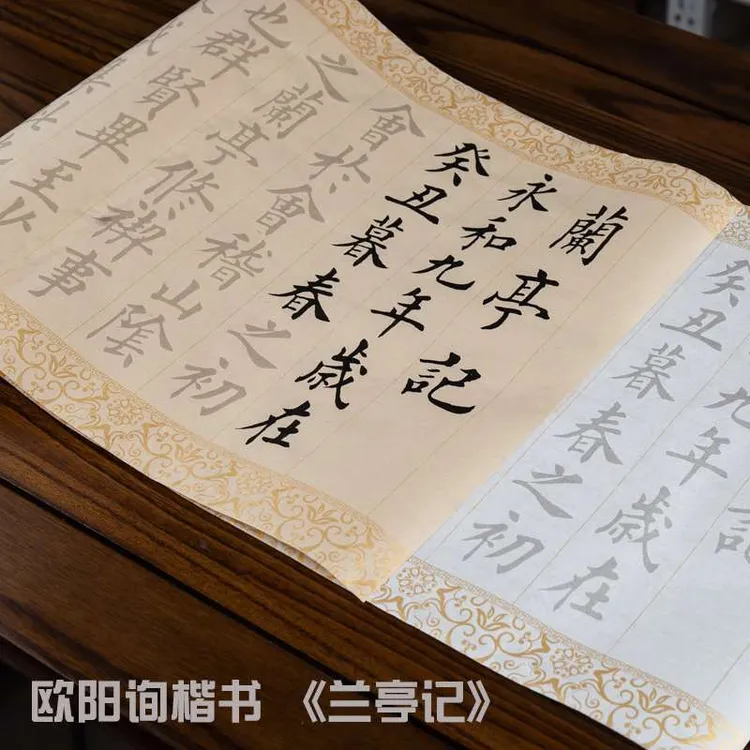 蘭亭記
永和九年歲在
癸丑暮春之初
會於會稽山陰
之蘭亭修禊事
也群賢畢至少
記
九年歲在
癸丑暮春之初
欧阳询楷书 《兰亭记》